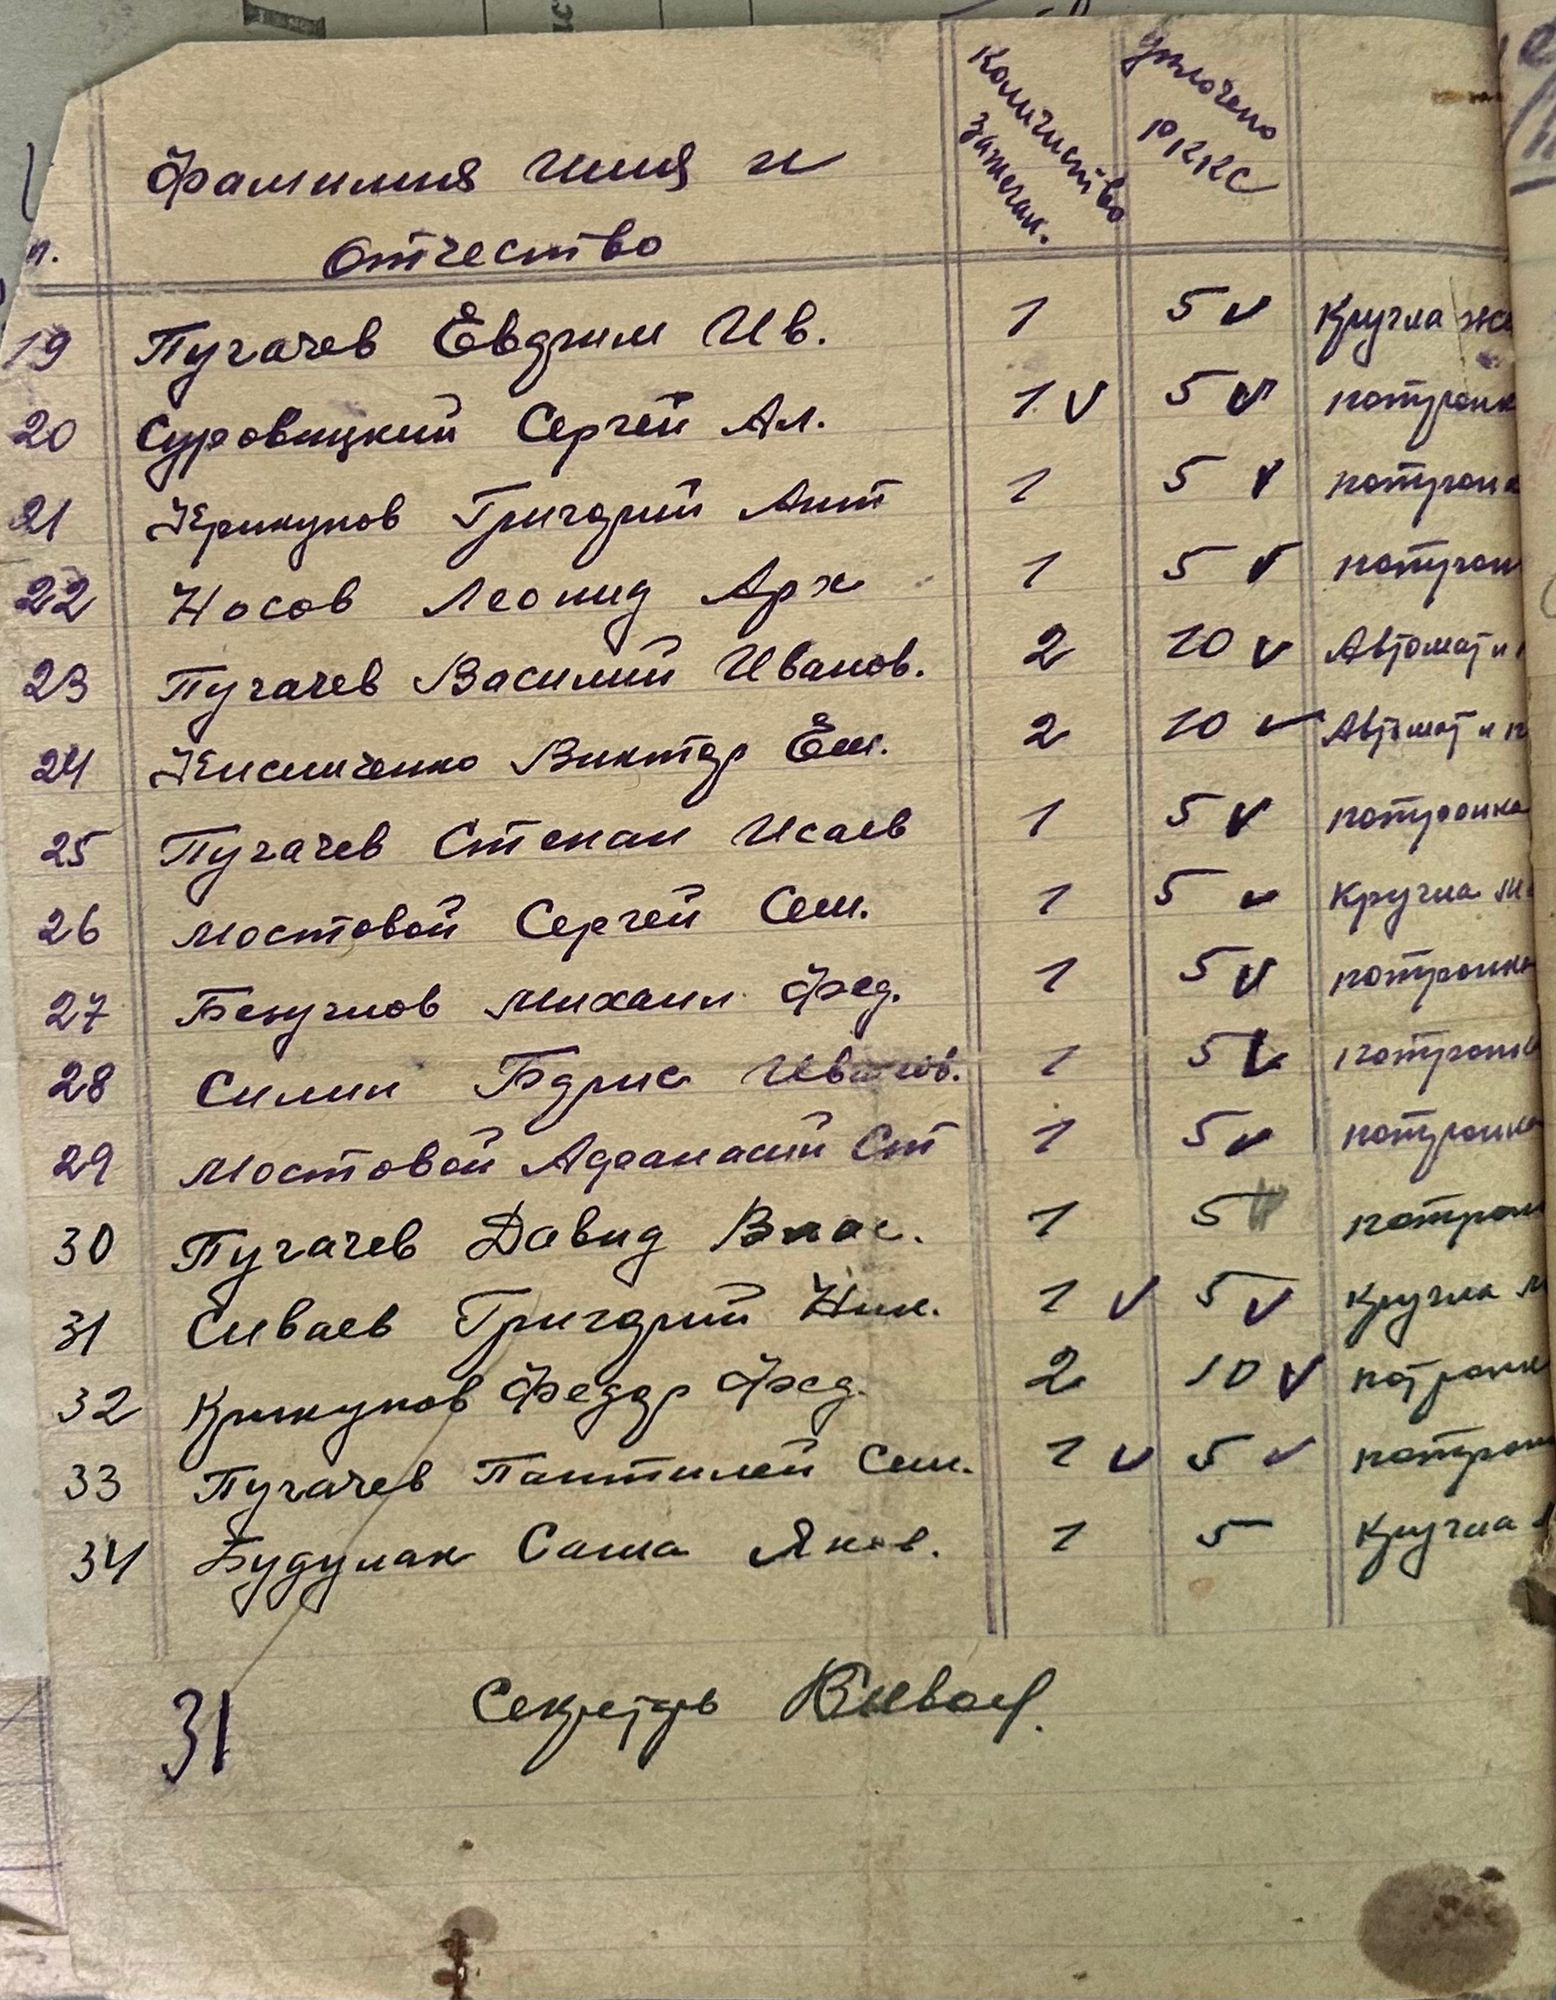 Фамилия имя и Количество зажегал. уплочено РККС
п. Отчество
19 Пугачев Евдрим Ив. 1 5 v Кругла
20 Суровицкий Сергей Ал. 1 v 5 v потронк
21 Крикунов Григорий Ант 1 5 v потрона
22 Носов Леонид Арх 1 5 v потрон
23 Пугачев Василий Иванов. 2 10 v Автомат и
24 Кисличенко Виктор Ем. 2 10 v Автомат и п
25 Пугачев Степан Исаев 1 5 v потронка
26 Мостовой Сергей Сем. 1 5 v Кругла
27 Безуглов Михаил Фед. 1 5 v потронка
28 Силин Борис Иванов. 1 5 v потронк
29 Мостовой Афанасий Ст 1 5 v потронка
30 Пугачев Давид Влас. 1 5 потрон
31 Сиваев Григорий Ник. 1 v 5 v Кругла
32 Крикунов Федор Фед. 2 10 v потронк
33 Пугачев Пантилей Сем. 1 v 5 v потрон
34 Будулак Саша Яков. 1 5 Кругла
31 Секретарь